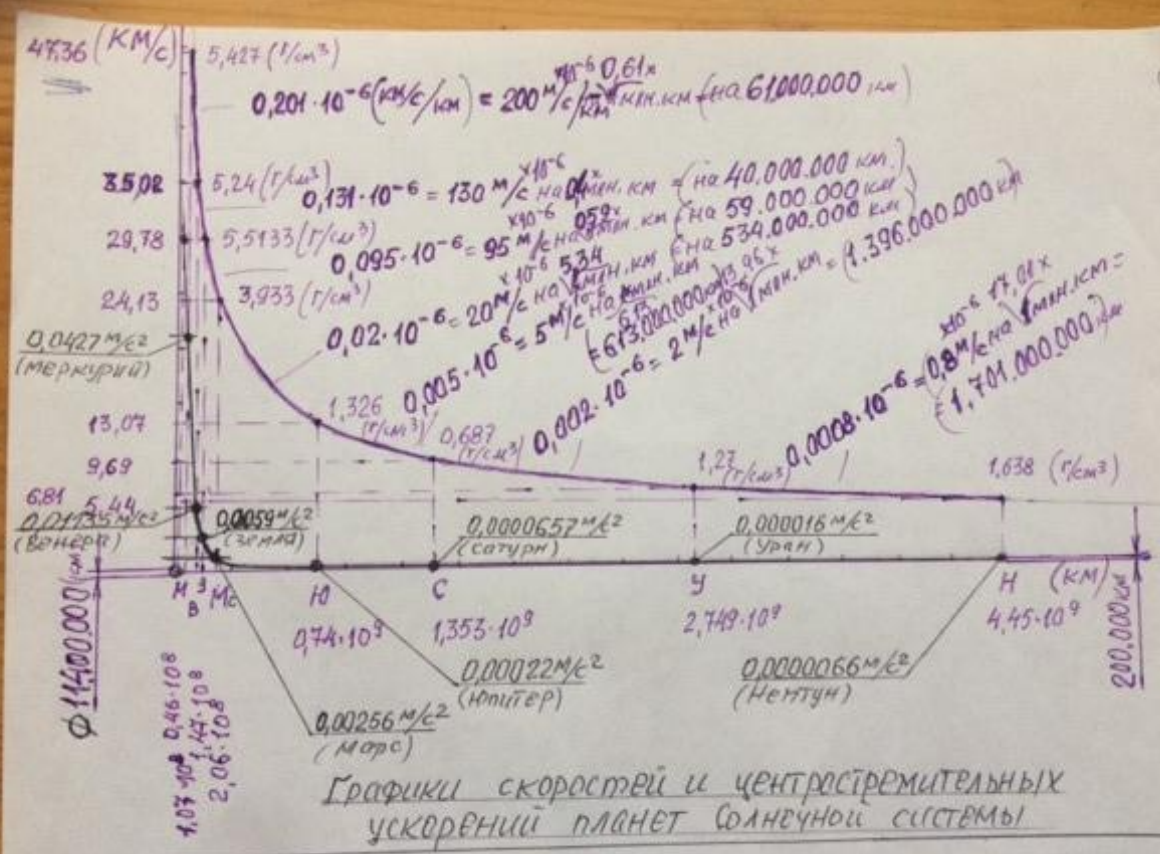 47,36 (км/с)
5,427 (г/см³)
0,201·10⁻⁶ (км/с/км) = 200 м/с/
×10⁻⁶ 0,61×
млн.км (на 61.000.000 км)
35,02
5,24 (г/см³)
0,131·10⁻⁶ = 130 м/с на
×10⁻⁶
млн. км = (на 40.000.000 км.)
29,78
5,5133 (г/см³)
0,095·10⁻⁶ = 95 м/с на
×10⁻⁶ 0,59×
млн. км (на 59.000.000 км)
24,13
3,933 (г/см³)
0,02·10⁻⁶ = 20 м/с на
×10⁻⁶ 5,34
1 млн. км (на 534.000.000 км)
0,005·10⁻⁶ = 5 м/с на
×10⁻⁶
млн. км
6,13
(=613.000.000 км)
0,002·10⁻⁶ = 2 м/с на
×10⁻⁶ 13,96×
1 млн. км = (1.396.000.000 км)
0,0008·10⁻⁶ = 0,8 м/с на
×10⁻⁶ 17,01×
1 млн. км =
= (1.701.000.000) км
0,0427 м/с²
(меркурий)
13,07
1,326
(г/см³)
9,69
0,687
(г/см³)
1,27
(г/см³)
1,638 (г/см³)
6,81
5,44
0,01135 м/с²
(Венера)
0,0059 м/с²
(Земля)
0,0000657 м/с²
(Сатурн)
0,000016 м/с²
(Уран)
М В З Мс Ю С У Н (км)
0,74·10⁹
1,353·10⁹
2,749·10⁹
4,45·10⁹
200.000 км
Ø 11400.000
1,07·10⁸ 0,46·10⁸
1,47·10⁸
2,06·10⁸
0,00022 м/с²
(Юпитер)
0,0000066 м/с²
(Нептун)
0,00256 м/с²
(Марс)
Графики скоростей и центростремительных
ускорений планет Солнечной системы